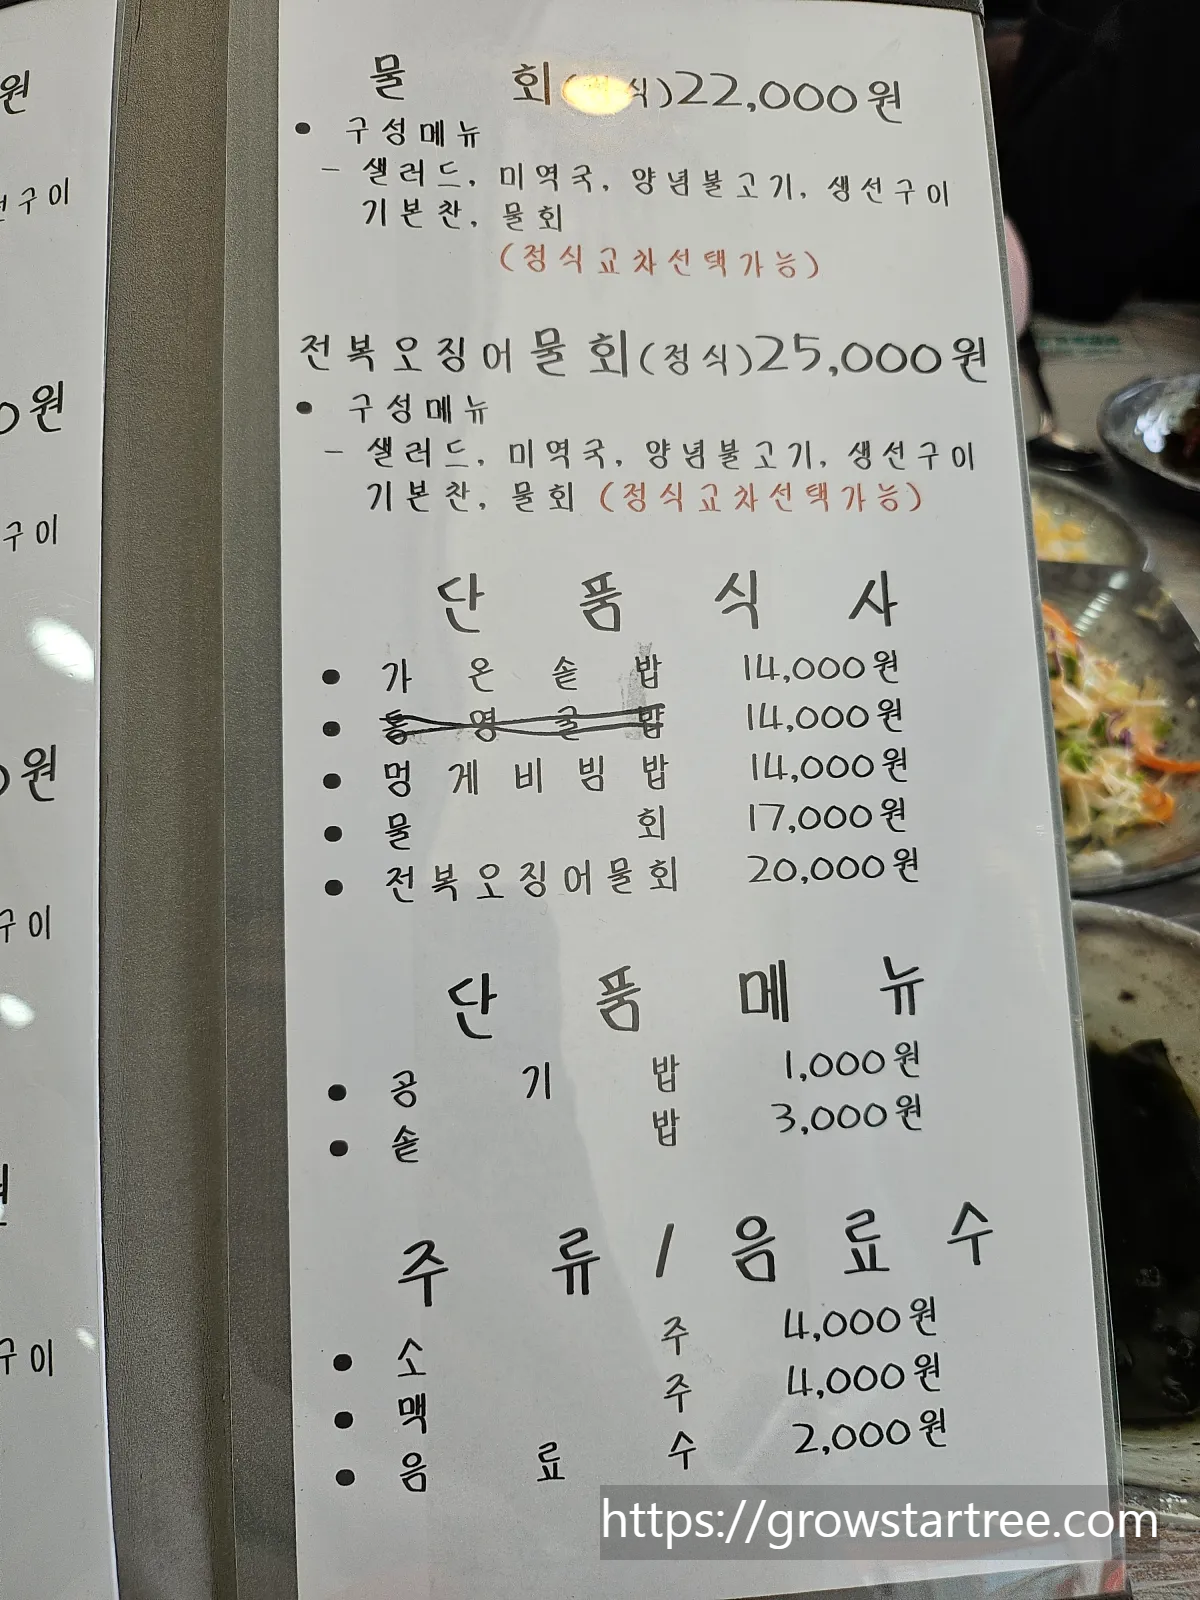 원
구이
0원
구이
원
구이
구이
물 회( 식)22,000원
• 구성메뉴
- 샐러드, 미역국, 양념불고기, 생선구이
기본찬, 물회
(정식교차선택가능)
전복오징어물회(정식)25,000원
• 구성메뉴
- 샐러드, 미역국, 양념불고기, 생선구이
기본찬, 물회 (정식교차선택가능)
단품식사
• 가온솥밥 14,000원
• 통영굴밥 14,000원
• 멍게비빔밥 14,000원
• 물회 17,000원
• 전복오징어물회 20,000원
단품메뉴
• 공기밥 1,000원
• 솥밥 3,000원
주류/음료수
• 소주 4,000원
• 맥주 4,000원
• 음료수 2,000원
https://growstartree.com